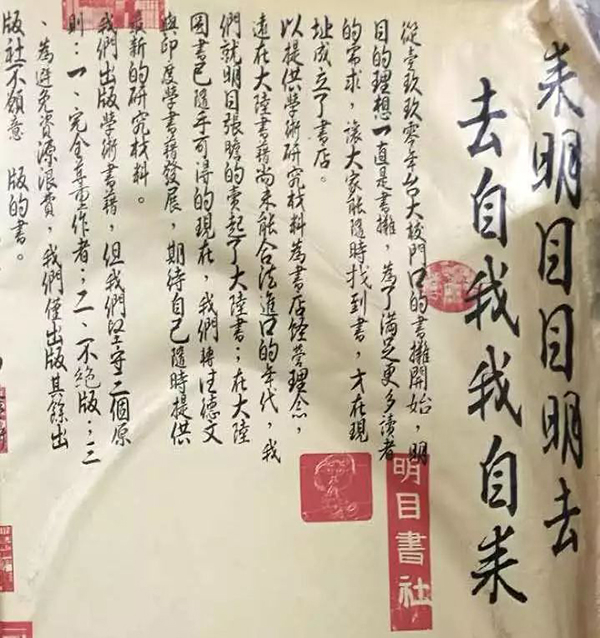 来明目目明去
去自我我自来
從壹玖玖零年台大校門口的書攤開始，明
目的理想一直是書攤，為了滿足更多讀者
的需求，讓大家能隨時找到書，才在現
址成立了書店。
以提供學術研究材料為書店經營理念，
遠在大陸書籍尚未能合法進口的年代，我
們就明目張膽的賣起了大陸書；在大陸
圖書已隨手可得的現在，我們轉注德文
與印度學書籍發展，期待自己隨時提供
最新的研究材料。
我們出版學術書籍，但我們堅守二個原
則：一、完全尊重作者；二、不絕版；三
、為避免資源浪費，我們僅出版其餘出
版社不願意 版的書。
明目書社